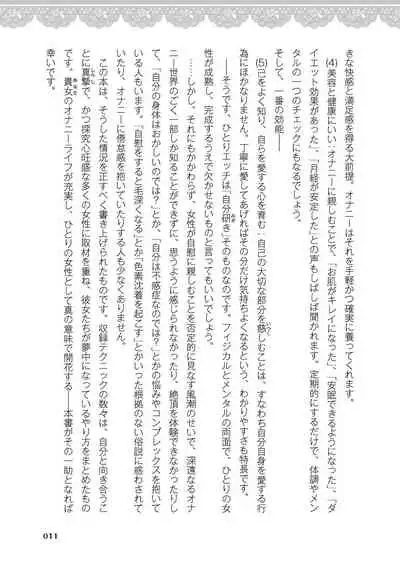 きな快感と満足感を得る大前提。オナニーはそれを手軽かつ確実に養ってくれます。
(4)美容と健康にいい…オナニーに親しむことで、「お肌がキレイになった」、「安眠できるようになった」、「ダ
イエット効果があった」、「月経が安定した」との声もしばしば聞かれます。定期的にするだけで、体調やメン
タルの一つのチェックにもなるでしょう。
そして、一番の効能――
(5)己をよく知り、自らを愛する心を育む…自己の大切な部分を慈しむことは、すなわち自分自身を愛する行
為にほかなりません。丁寧に愛してあげればその分だけ気持ちよくなるという、わかりやすさも特長です。
――そうです、ひとりエッチは「自分研き」そのものなのです。フィジカルとメンタルの両面で、ひとりの女
性が成熟し、完成するうえで欠かせないものと言ってもいいでしょう。
……しかし、それにもかかわらず、女性が自慰に親しむことを否定的に見なす風潮のせいで、深遠なるオナ
ニー世界のごく一部しか知ることができずに、思うように感じられなかったり、絶頂を体験できなかったりし
て、「自分の身体はおかしいのでは？」とか、「自分は不感症なのでは？」とかの悩みやコンプレックスを抱いて
いる人もいます。「自慰をすると毛深くなる」とか「色素沈着を起こす」とかいった根拠のない俗説に惑わされて
いたり、オナニーに倦怠感を抱いていたりする人も少なくありません。
この本は、そうした情況を正すべく書き上げられたものです。収録テクニックの数々は、自分と向き合うこ
とに真摯で、かつ探究心旺盛な多くの女性に取材を重ね、彼女たちが夢中になっているやり方をまとめたもの
です。貴女のオナニーライフが充実し、ひとりの女性として真の意味で開花する――本書がその一助となれば
幸いです。
011